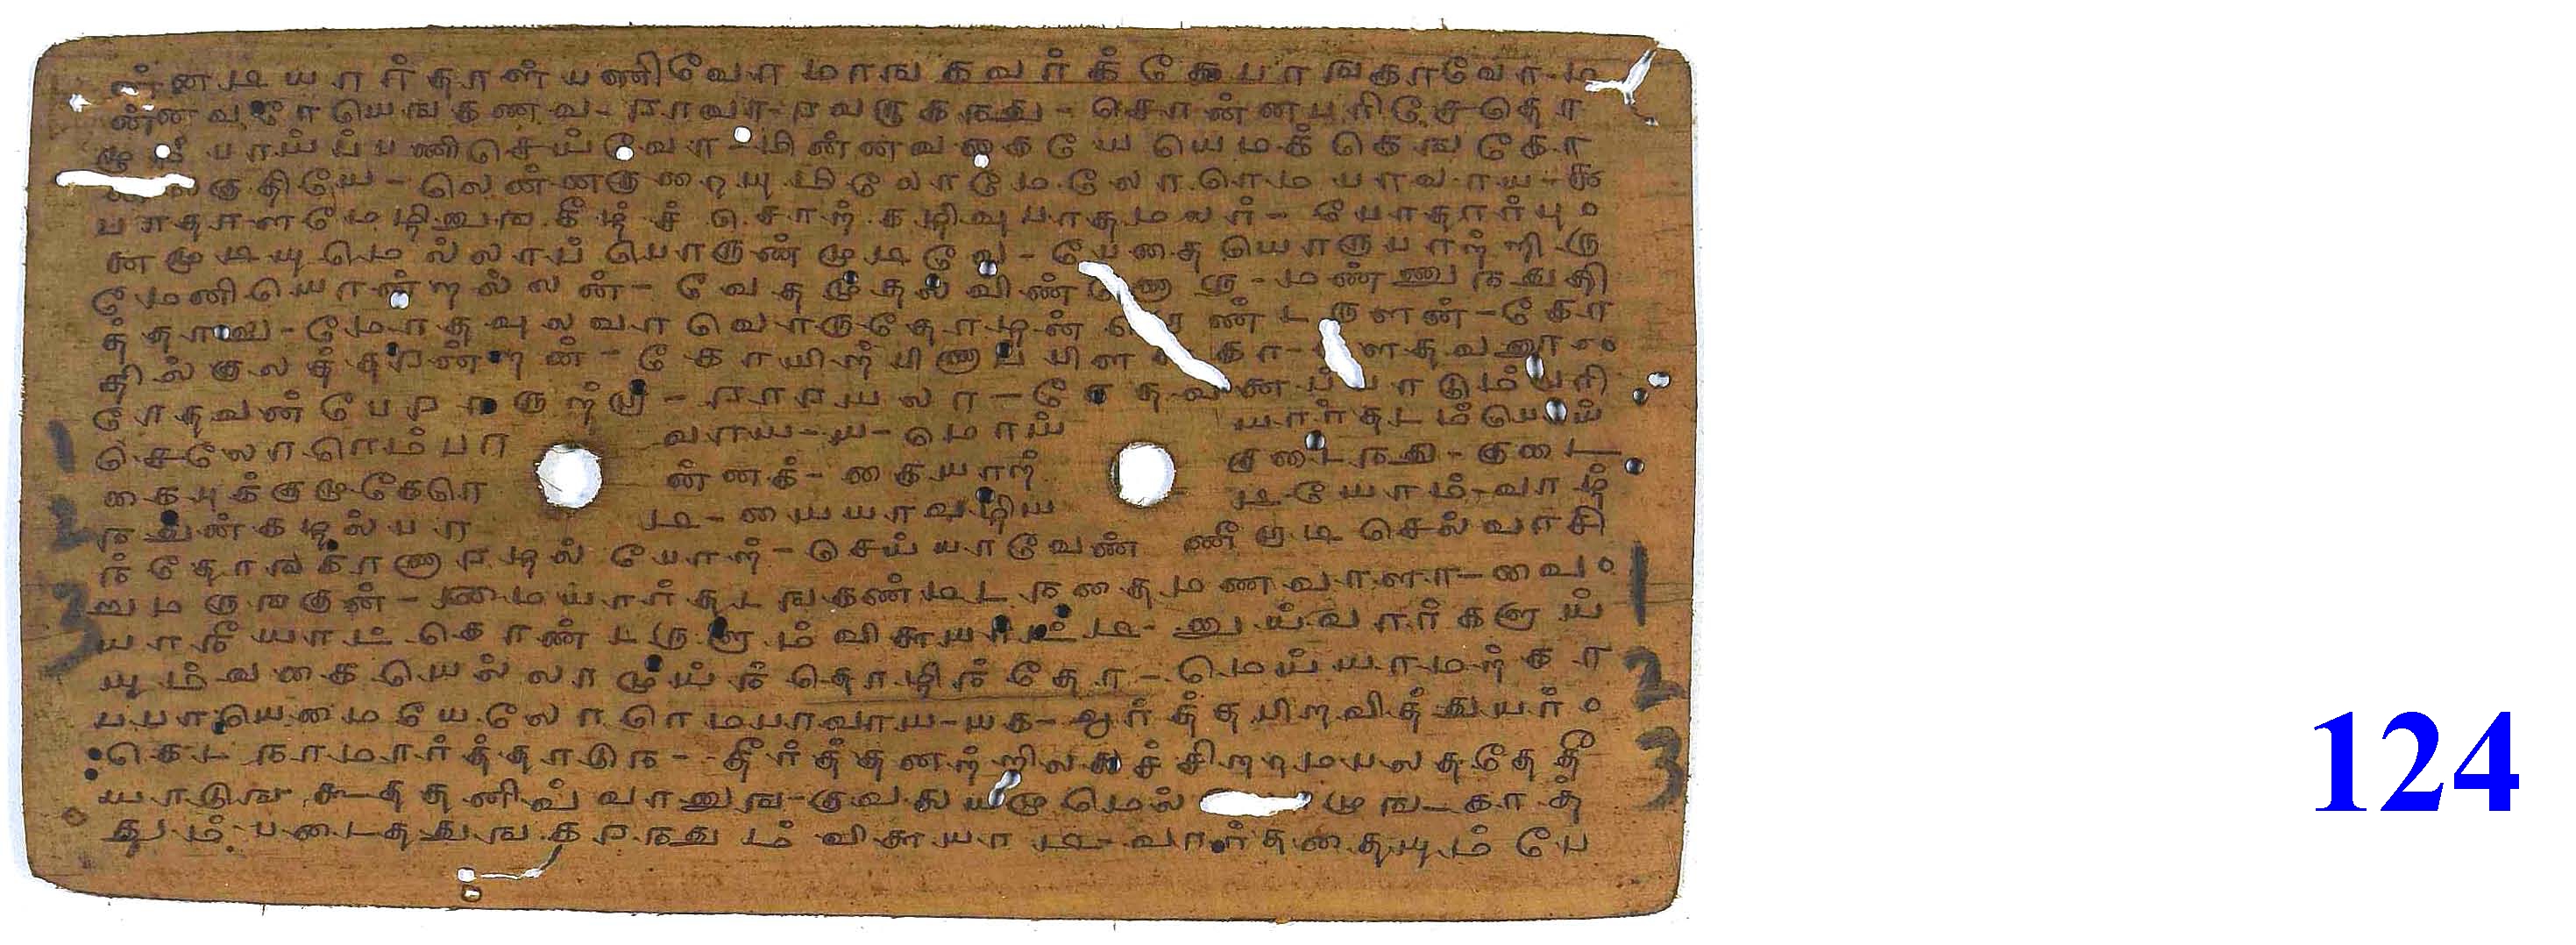 ன்னடியார்தாள் பணிவோமாங்கவர்க்கே பாங்காவோ-ம
ன்னவரேயெங்கணவ-ராவா-ரவருகந்து-சொன்னபரிசேதொ
ழும்பாய்ப்பணிசெய்வோ-மின்னவகையே யெமக்கெங்கோ
னல்குதியே-லென்னகுறையுமிலோமேலோரெமபாவாய-க
பாதாளமேழினுங கீழ்ச் சொற்கழிவு பாதமலர்-போதார்பு
னைமுடியுமெல்லாப் பொருண்முடிவே-பேதையொருபாற்றிரு
மேனியொன்றல்லன்-வேதமுதல்விண்ணோரு-மண்ணுநதுதி
த்தாலு-மோதவுலவா வொருதோழன் ண்டருளன்-கோ
தில்குலத்தரன்றன்-கோயிற்பிணாப்பிள கா-ளேதவனூ
ரேதவன்பேராருற்று-ராரயலா-ரேதவனைப்பாடும்பரி
சேலோரெம்பா வாய-ய-மொய் யார்தடம்பொய்
கைபுக்குமுகேரெ ன்னக்-கையாற் குடைநது-குடை
ந துன்கழல்பா டி-யையாவழிய டியோம்-வாழ்
ந்தோங்காணாரழல் போற்-செய்யாவெண் ணீறாடி செல்வாசி
றுமருஙகுன்-மையார்தடஙகண்மடநதைமணவாளா-வை
யாநீ யாட்கொண்டருளும் விளையாட்டி-னுய்வார்களுய்
யும்வகையெல்லாமுய்ந்தொழிந்தோ-மெய்யாமற்கா
பபாயெமையேலோரெமபாவாய-யக-ஆர்த்தபிறவித்துயர்
கெட நாமார்த்தாடுந-தீர்த்தனற்றிலலச்சிறறமபலததே தீ
யாடுங கூத்தனிவ் வானுங-குவலயமுமெல் முங-காத்
தும் படைததுங கரநதும் விளையாடி-வார்ததையும் பே
124